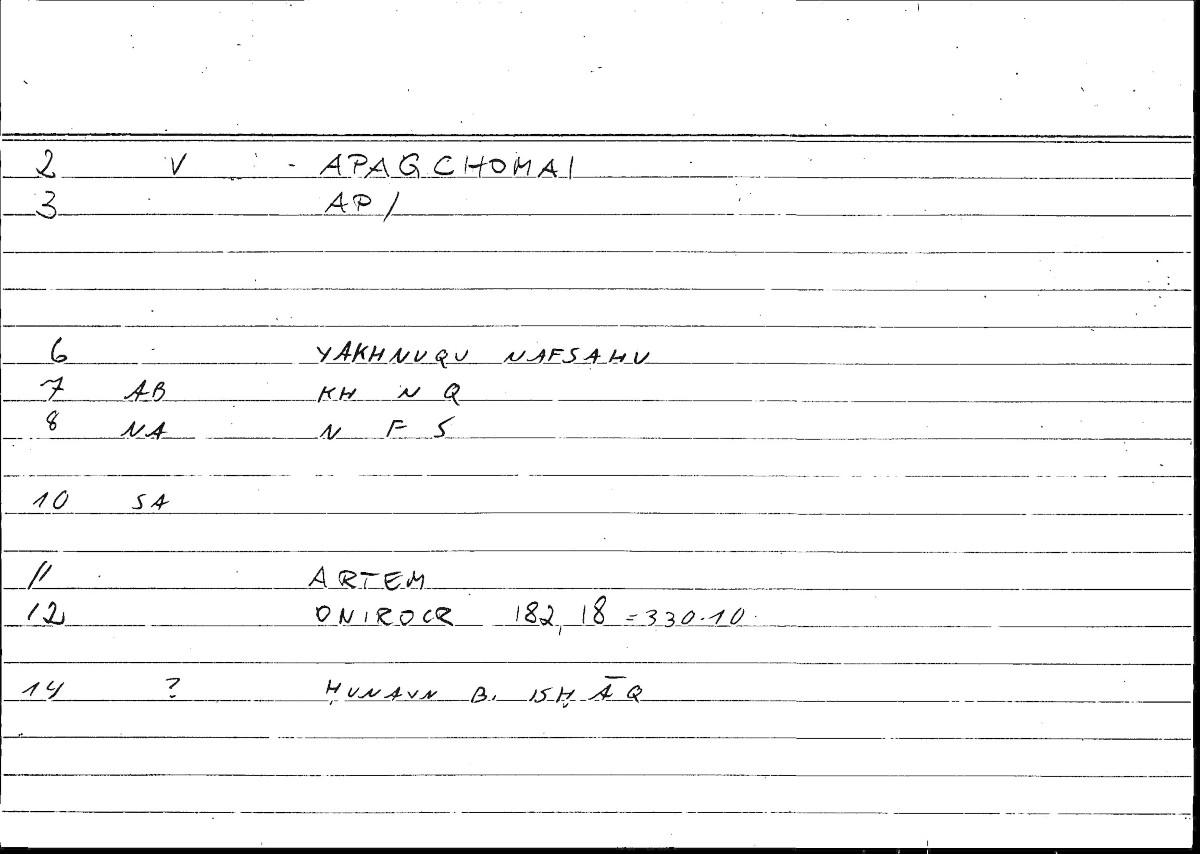 2 V - APAGCHOMAI
3 AP/
6 YAKHNUQU NAFSAHU
7 AB KH N Q
8 NA N F S
10 SA
11 ARTEM
12 ONIROCR 182,18 =330.10.
14 ? ḤUNAYN B. ISḤĀQ